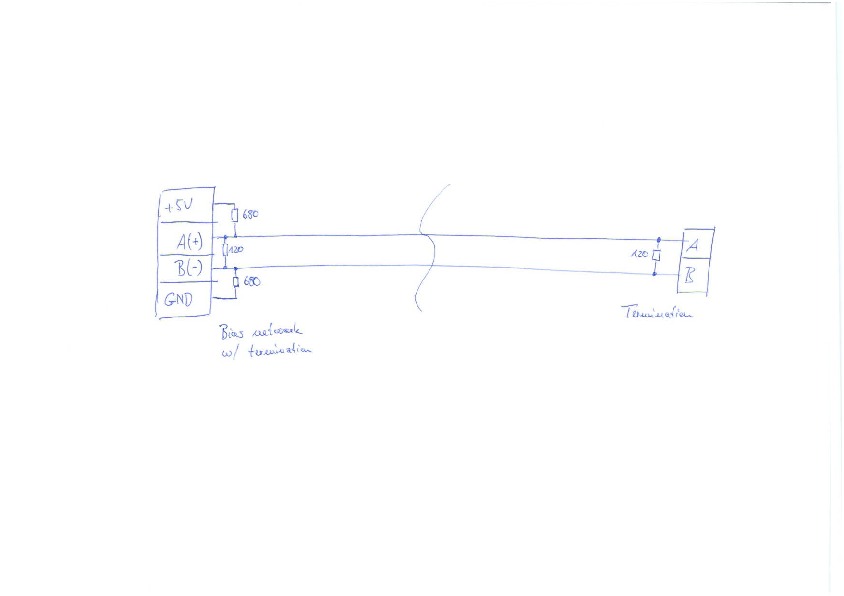 +5V
680
A(+)
120
B(-)
680
GND
Bias network
w/ termination
120
A
B
Termination